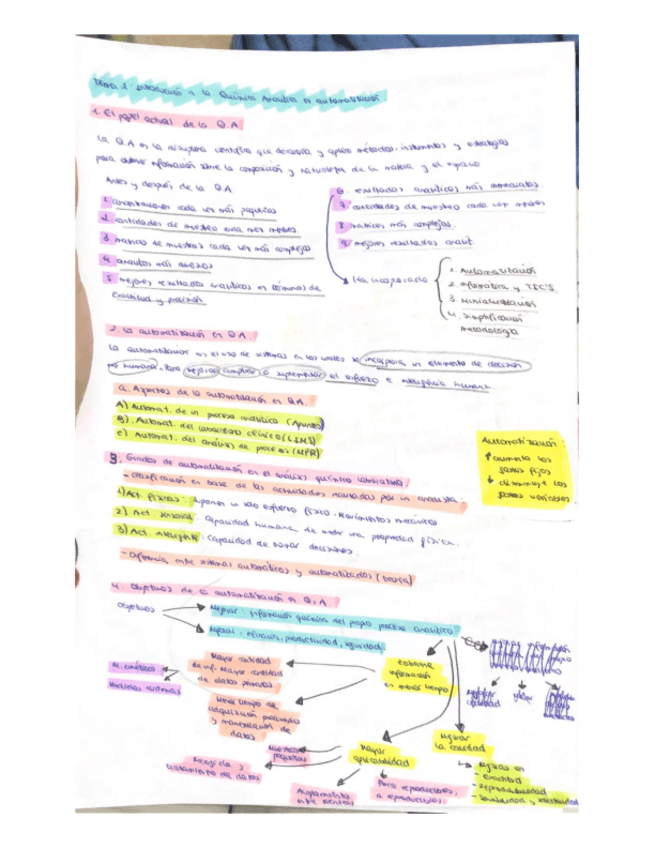 Tema 1: Introducción a la Química Analítica en automatización
1. El papel actual de la Q.A
La Q.A es la disciplina científica que desarrolla y aplica métodos, instrumentos y estrategias
para obtener información sobre la composición y naturaleza de la materia y el espacio
Antes y después de la Q.A
1. concentraciones cada vez más pequeñas
2. cantidades de muestra cada vez menores
3. matrices de muestras cada vez más complejas
4. analitos más
5. mejores resultados analíticos en términos de
exactitud y precisión
6. resultados analíticos más
7. cantidades de muestreo cada vez menores
8. matrices más complejas
9. mejores resultados analit.
Ha incorporado
1. Automatización
2. Informática y TIC'S
3. Miniaturización
4. Simplificación
metodología
2. La automatización en Q.A.
La automatización es el uso de sistemas en los cuales se incorpora un elemento de decisión
no humana. Para mejorar, cumplir o suplementar el esfuerzo e inteligencia humana.
a. Aspectos de la automatización en Q.A.
A) Automat. de un proceso analítico (Apuntes)
B). Automat. del laboratorio clínico (LIMS)
C) Automat. del análisis de procesos (MPR)
Automatización:
↑ aumenta los
gastos fijos
↓ disminuye los
gastos variables
3. Grados de automatización en el análisis químico laboratorio.
- clasificación en base de las actividades realizadas por un analista.
1) Act. físicas: suponen un sólo esfuerzo físico. Movimientos mecánicos
2) Act. sensorial: capacidad humana de medir una propiedad física.
3) Act. inteligente: capacidad de tomar decisiones.
- Diferencia entre sistemas automáticos y automatizados (tarea)
4. Objetivos de la automatización en Q.A
Objetivos
Mejorar: información química del propio proceso analítico
Mejorar: eficacia, productividad, seguridad
Mayor cantidad
de inf. Mayor cantidad
de datos primarios
M. cinéticos
Medidas
Obtener
información
en menor tiempo
Menor tiempo de
adquisición procesado
y manipulación de
datos
Mejorar
la calidad
Mayor
aplicabilidad
Muestras
pequeñas
Recogida y
tratamiento de datos
Acoplamiento
entre
Poco reproducibles,
a reproducibles.
Mejoras en
- exactitud
- Reproducibilidad
- Sensibilidad y selectividad